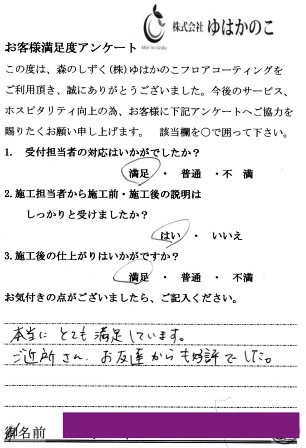 株式会社 ゆはかのこ
お客様満足度アンケート
この度は、森のしずく(株)ゆはかのこフロアコーティングを
ご利用頂き、誠にありがとうございました。今後のサービス、
ホスピタリティ向上の為、お客様に下記アンケートへご協力を
賜りたくお願い申し上げます。 該当欄を○で囲って下さい。
1. 受付担当者の対応はいかがでしたか?
満足 ・ 普通 ・ 不満
2.施工担当者から施工前・施工後の説明は
しっかりと受けましたか?
はい ・ いいえ
3.施工後の仕上がりはいかがですか?
満足 ・ 普通 ・ 不満
お気付きの点がございましたら、ご記入ください。
本当に とても 満足しています。
ご近所さん、お友達からも好評でした。
御名前